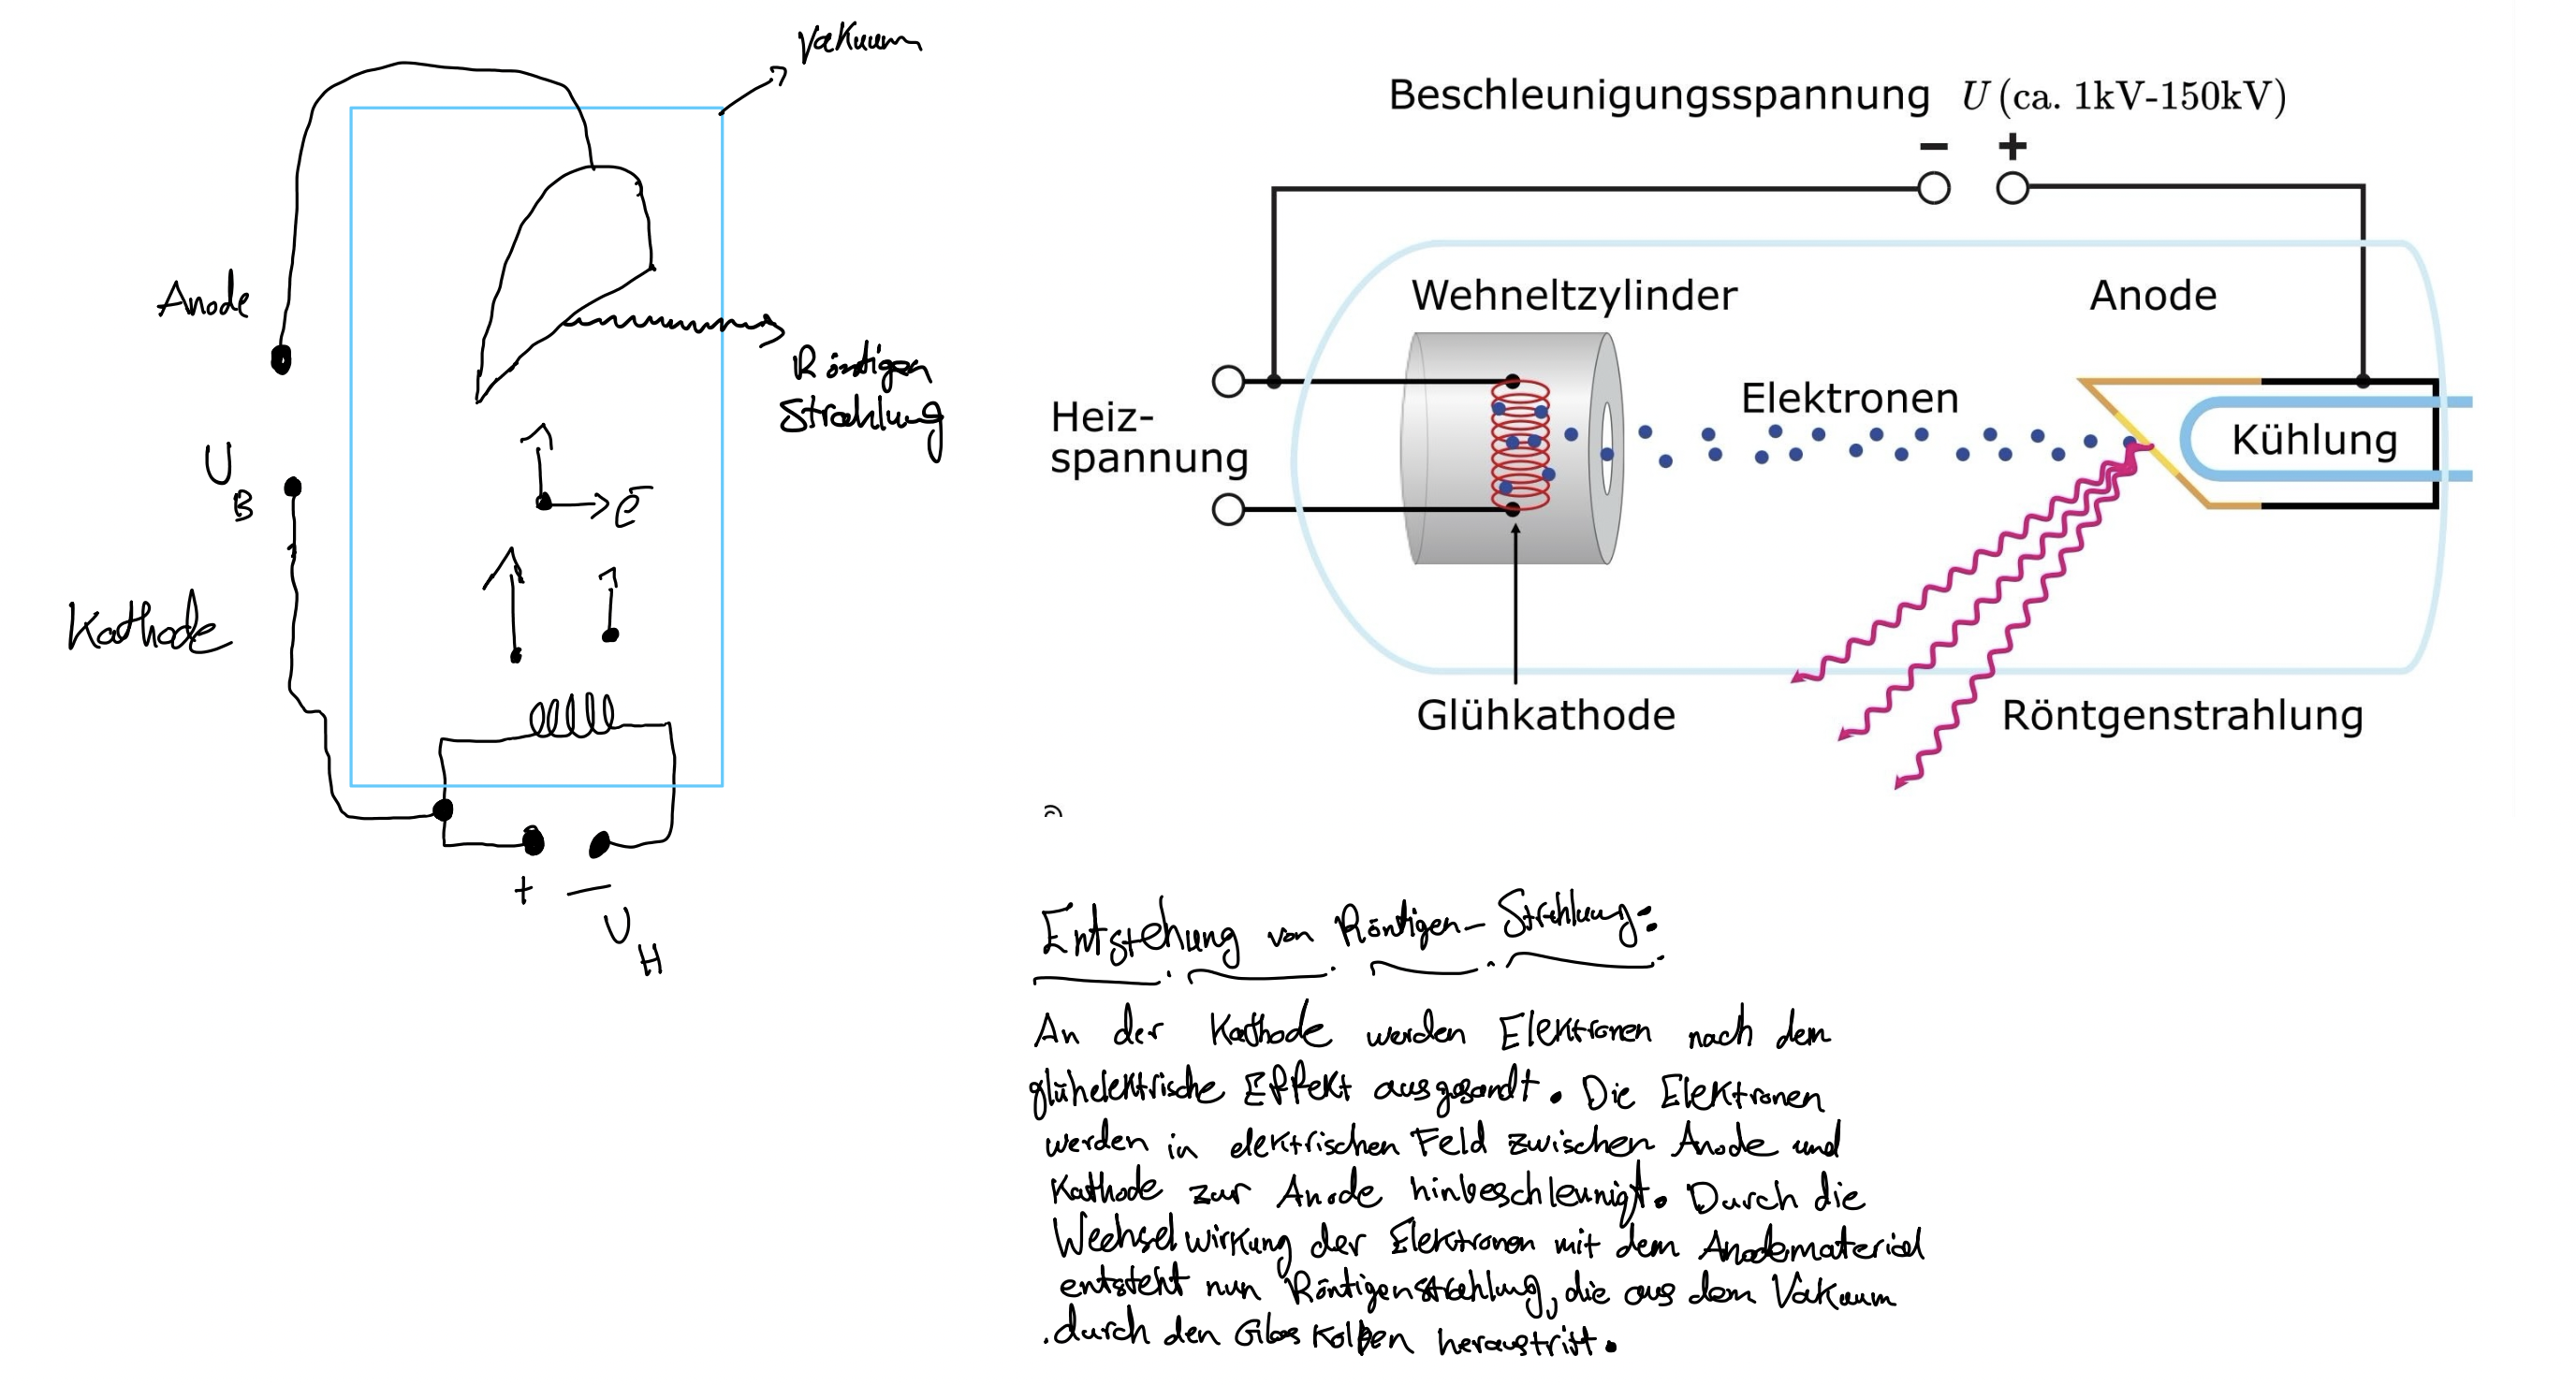 Vakuum
Anode
Röntigen
Strahlung
U
B
e-
Kathode
+ −
U
H
Beschleunigungsspannung U (ca. 1kV-150kV)
− +
Wehneltzylinder
Anode
Elektronen
Heiz-
spannung
Kühlung
Glühkathode
Röntgenstrahlung
Entstehung von Röntigen-Strahlung:
An der Kathode werden Elektronen nach dem
glühelektrische Effekt ausgesandt. Die Elektronen
werden in elektrischen Feld zwischen Anode und
Kathode zur Anode hinbeschleunigt. Durch die
Wechselwirkung der Elektronen mit dem Anodematerial
entsteht nun Röntigenstrahlung, die aus dem Vakuum
durch den Glas Kolben heraustritt.